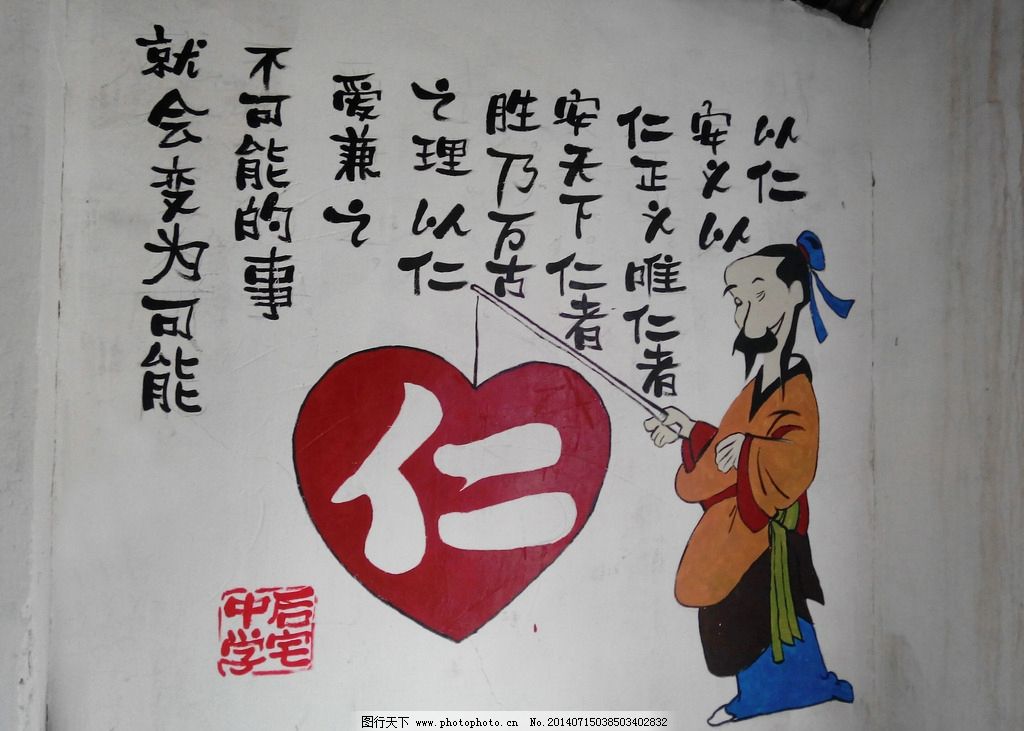 以仁
安义以
仁正义唯仁者
安天下仁者
胜乃万古
之理以仁
爱兼之
不可能的事
就会变为可能
仁
后宅
中学
图行天下 www.photophoto.cn No.20140715038503402832